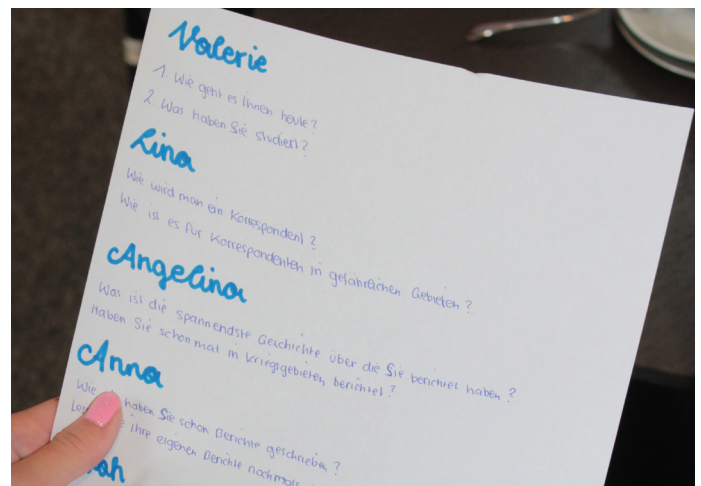 Valerie
1. Wie geht es Ihnen heute?
2. Was haben Sie studiert?
Lina
Wie wird man ein Korrespondent?
Wie ist es für Korrespondenten in gefährlichen Gebieten?
Angelina
Was ist die spannendste Geschichte über die Sie berichtet haben?
Haben Sie schonmal in Kriegsgebieten berichtet?
Anna
Wie haben Sie schon Berichte geschrieben?
ihre eigenen Berichte nochmals